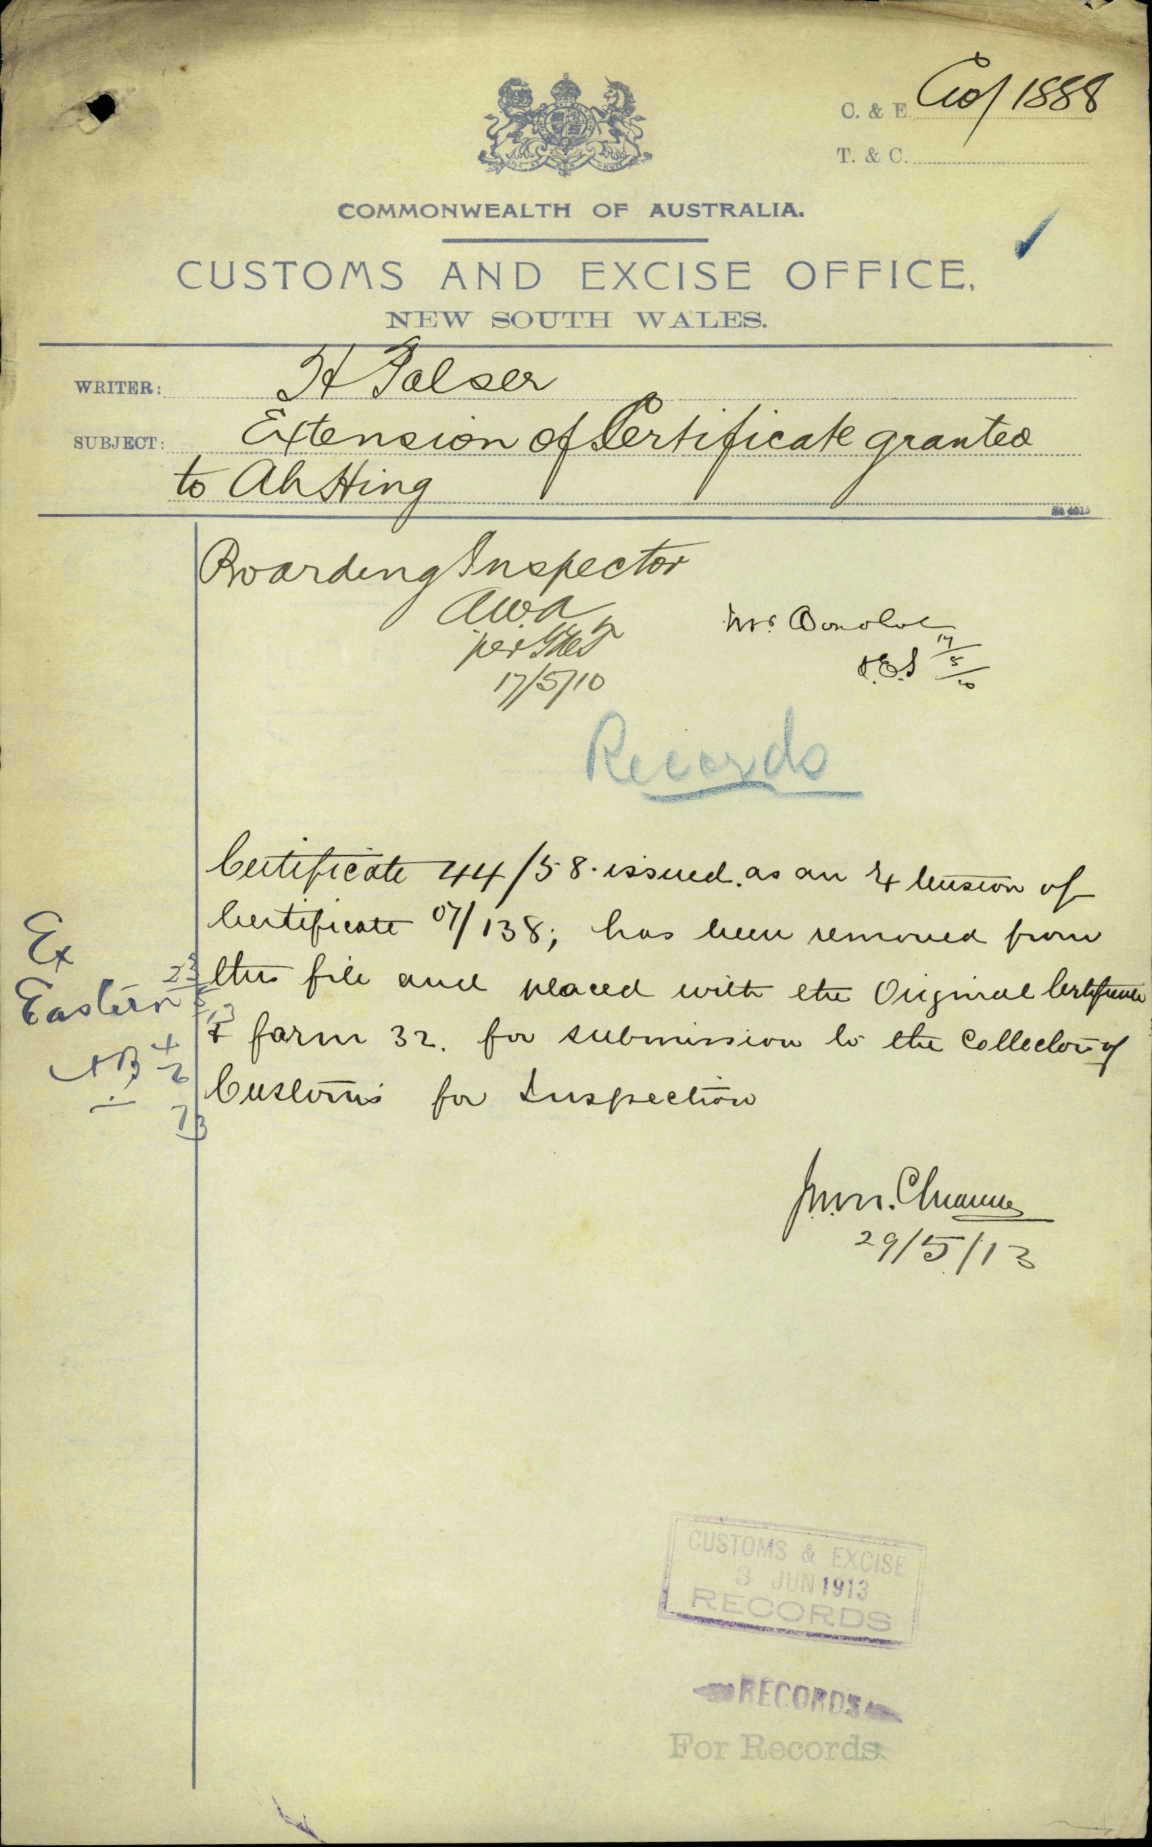 C. & E. C10/1888
T. & C.
COMMONWEALTH OF AUSTRALIA.
CUSTOMS AND EXCISE OFFICE,
NEW SOUTH WALES.
WRITER: H Palser
SUBJECT: Extension of Certificate granted
to Ah Hing
Boarding Inspector
A.W.A
per
17/5/10
Mr. Donohoe
17/5/10
Records
Certificate 44/58. issued. as an Extension of
Certificate 07/138; has been removed from
this file and placed with the Original Certificate
& form 32. for submission to the Collector of
Customs for Inspection
29/5/13
Ex
Eastern 23/5/13
4/6/13
CUSTOMS & EXCISE
3 JUN 1913
RECORDS
RECORDS
For Records